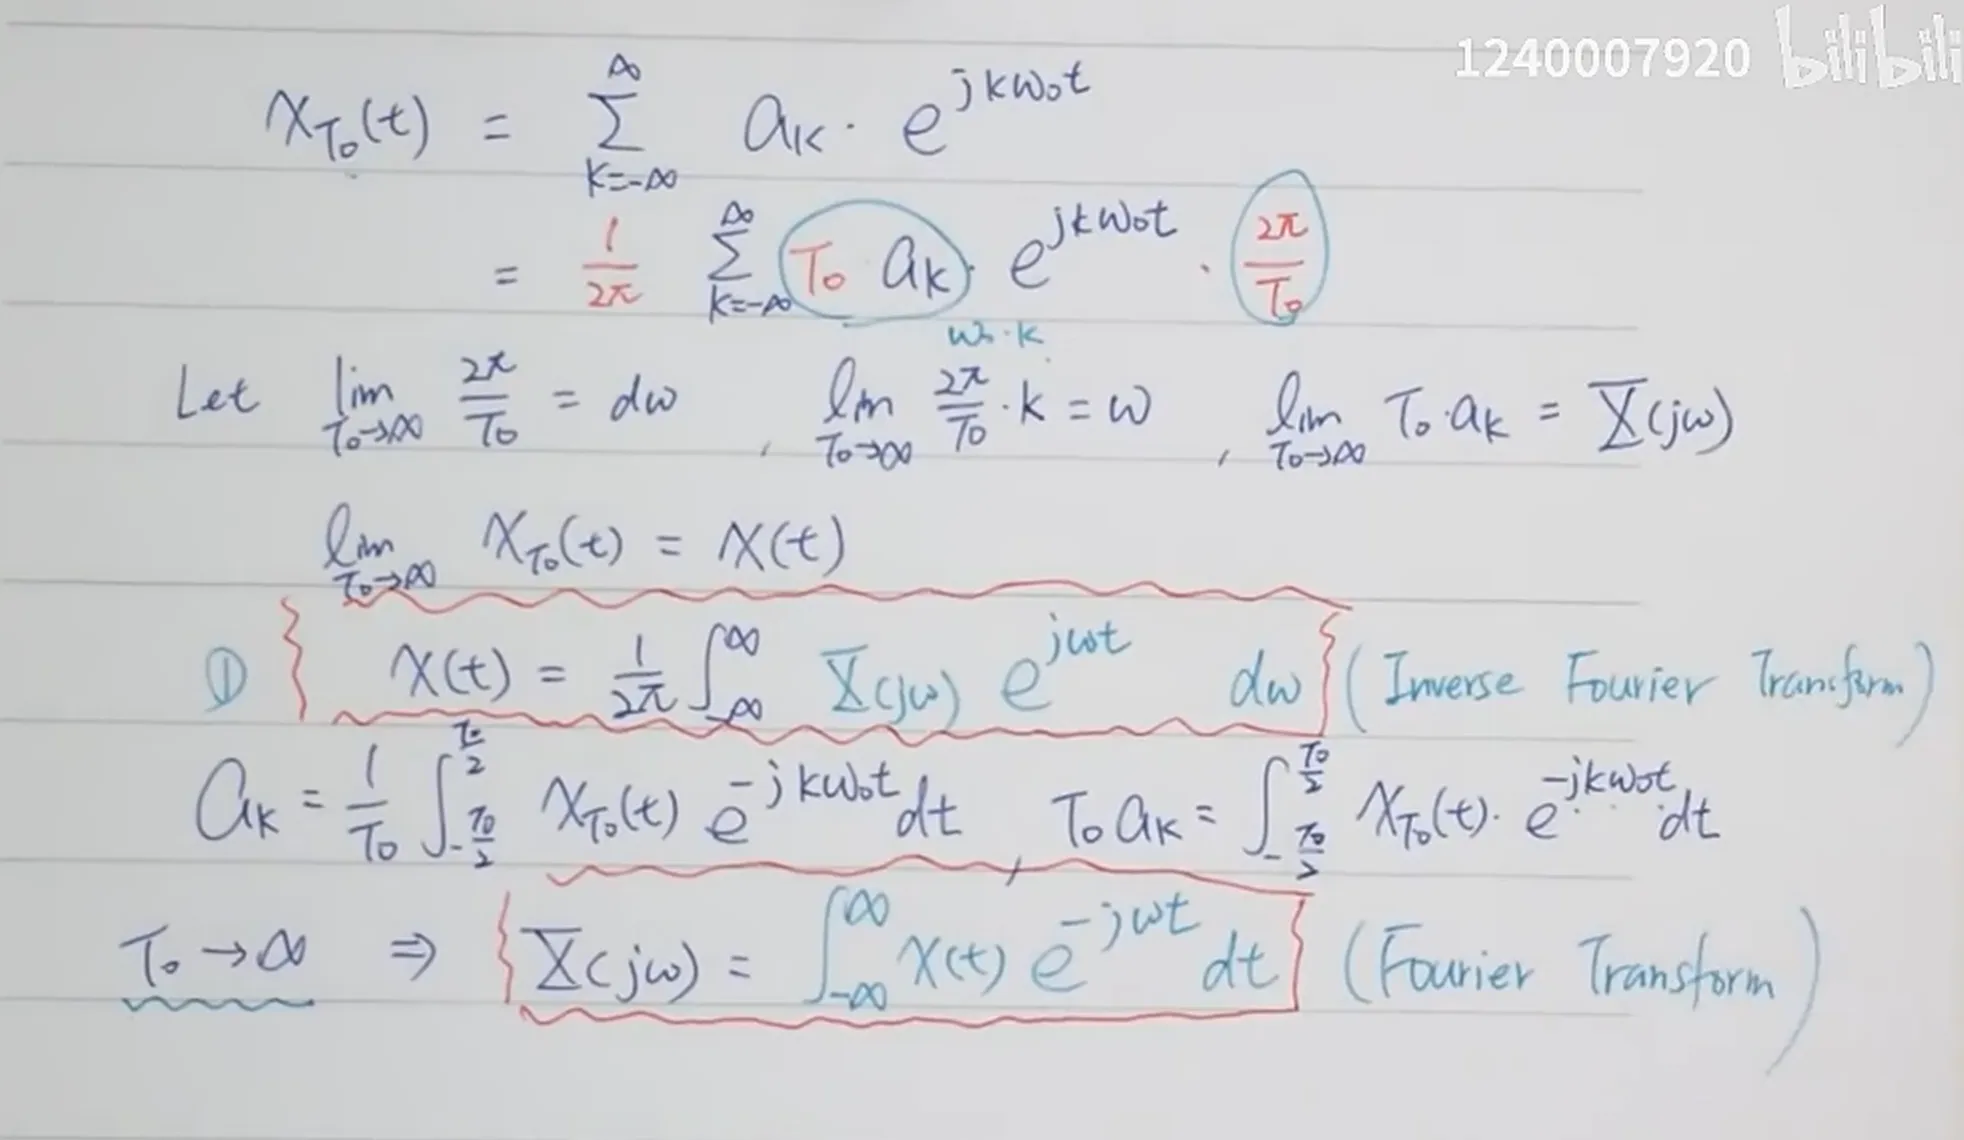 1240007920 bilibili
x_{T₀}(t) = ∑_{k=-∞}^{∞} a_k · e^{jkω₀t}
= 1/2π ∑_{k=-∞}^{∞} T₀ a_k · e^{jkω₀t} · 2π/T₀
ω₀·k
Let lim_{T₀→∞} 2π/T₀ = dω , lim_{T₀→∞} 2π/T₀ · k = ω , lim_{T₀→∞} T₀·a_k = X(jω)
lim_{T₀→∞} x_{T₀}(t) = x(t)
① x(t) = 1/2π ∫_{-∞}^{∞} X(jω) e^{jωt} dω (Inverse Fourier Transform)
a_k = 1/T₀ ∫_{-T₀/2}^{T₀/2} x_{T₀}(t) e^{-jkω₀t} dt , T₀ a_k = ∫_{-T₀/2}^{T₀/2} x_{T₀}(t) · e^{-jkω₀t} dt
T₀→∞ ⇒ X(jω) = ∫_{-∞}^{∞} x(t) e^{-jωt} dt (Fourier Transform)